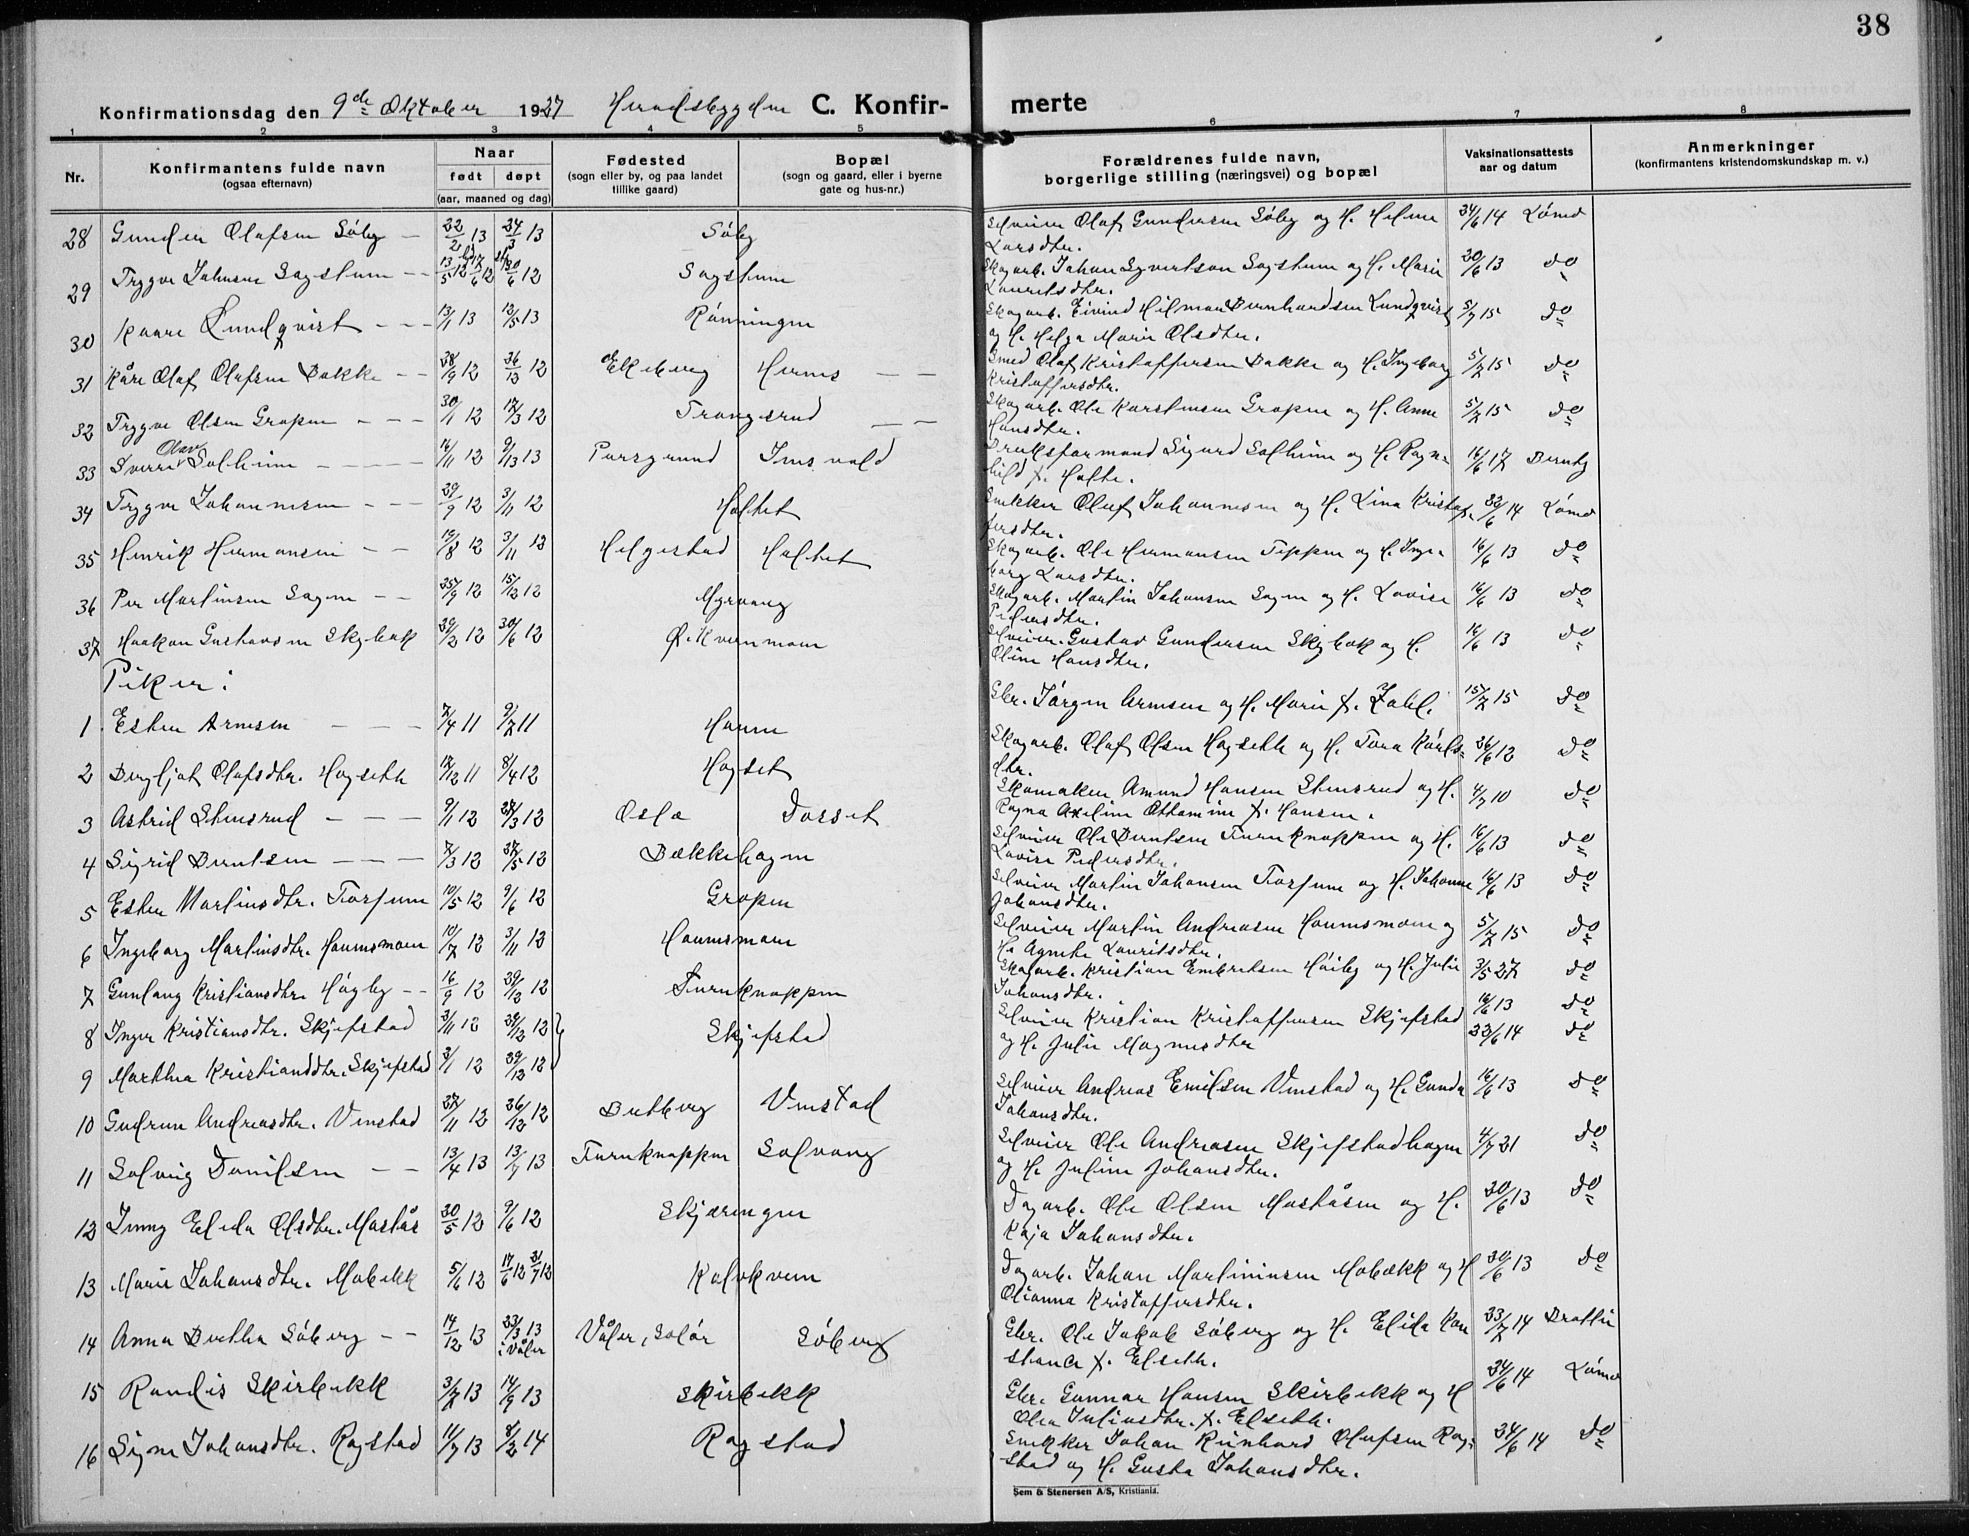 38
Konfirmationsdag den 9de Oktober 1927 C. Konfir- merte
1 2 3 4 5 6 7 8
Nr. Konfirmantens fulde navn (ogsaa efternavn) Naar født døpt (aar, maaned og dag) Fødested (sogn eller by, og paa landet tillike gaard) Bopæl (sogn og gaard, eller i byerne gate og hus-nr.) Forældrenes fulde navn, borgerlige stilling (næringsvei) og bopæl Vaksinationsattests aar og datum Anmerkninger (konfirmantens kristendomskundskap m. v.)
28 Gunder Olafsen Søby 22/2 13 24/3 13 Søby Selveier Olaf Gundersen Søby og H. Helene Larsdtr. 24/6 14
29 Trygve Johansen Sagstuen 13/5 12 Sagstuen Skogarb. Johan Syvertsen Sagstuen og H. Marie Lauritsdtr. 20/6 13 do
30 Kaare Lundqvist 13/1 13 12/5 13 Rønningen Skogarb. Eivind Hilmar Bernhardsen Lundqvist og H. Helga Marie Olsdtr. 5/7 15 do
31 Kåre Olaf Olafsen Bakke 28/9 12 26/12 12 Ekeberg Hernes Smed Olaf Kristoffersen Bakke og H. Ingeborg Kristoffersdtr. 5/7 15 do
32 Trygve Olsen Gropen 30/1 12 17/3 12 Trangsrud Skogarb. Ole Karstensen Gropen og H. Anne Hansdtr. 5/7 15 do
33 Sverre Olav Solheim 16/11 12 Porsgrund Imsvold Bruksformand Sigurd Solheim og H. Ragnhild f. Holte. 16/6 17
34 Trygve Johannesen 29/9 12 3/11 12 Holtet Snekker Oluf Johannesen og H. Lina Kristoffersdtr. 22/6 14
35 Henrik Hermansen 19/8 12 3/11 12 Helgestad Holtet Skogarb. Ole Hermansen Teppen og H. Ingeborg Larsdtr. 16/6 13 do
36 Per Martinsen Sagen 25/9 12 15/12 12 Myrvang Skogarb. Martin Johansen Sagen og H. Lovise Pedersdtr. 16/6 13 do
37 Haakon Gustavsen Skybak 29/2 12 30/6 12 Ø. Kvernmoen Selveier Gustav Gundersen Skybak og H. Oline Hansdtr. 16/6 13 do
Piker:
1 Esther Arnesen 7/4 11 9/7 11 Gbr. Jørgen Arnesen og H. Marie f. Zahl. 15/7 15 do
2 Bergljot Olafsdtr. Hagseth 17/12 11 8/4 12 Hagset Skogarb. Olaf Olsen Hagseth og H. Tora Karlsdtr. 26/6 12 do
3 Astrid Stensrud 9/1 12 Oslo Dorset Skomaker Amund Hansen Stensrud og H. Ragna Axeline Othamine f. Hansen. 4/7 10 do
4 Sigrid Berntsen 7/3 12 27/5 12 Bækkehagen Selveier Ole Berntsen Furuknappen og H. Lovise Pedersdtr. 16/6 13 do
5 Esther Martinsdtr. Torfuen 10/5 12 9/6 12 Gropen Selveier Martin Johansen og H. Johanne Johansdtr. 16/6 13 do
6 Ingeborg Martinsdtr. Havnsmoen 10/7 12 3/11 12 Selveier Martin Andreasen og H. Agnethe Lauritsdtr. 5/7 15 do
7 Gunlaug Kristiansdtr. Høgby 16/9 12 29/12 12 Furuknappen Skogarb. Kristian Embretsen Høiby og H. Julie Johansdtr. 3/5 27 do
8 Inger Kristiansdtr. Skjefstad 3/11 12 29/12 12 Skjefstad Selveier Kristian Kristoffersen Skjefstad og H. Julie Magnusdtr 16/6 13 do
9 Marthea Kristiansdtr. Skjefstad 3/1 12 29/12 12 23/6 14 do
10 Gudrun Andreasdtr. Vinstad 27/11 12 26/12 12 Berberg Vinstad Selveier Andreas Emilsen Vinstad og H. Gunda Johansdtr. 16/6 13 do
11 Solveig Danielsen 13/4 13 13/7 13 Furuknappen Solvang Selveier Ole Andreasen Skjefstadhagen og H. Juline Johansdtr. 4/7 21 do
12 Jenny Elida Olsdtr. Mastås 30/5 12 9/6 12 Skjæringen Dagarb. Ole Olsen Maståsen og H. Kaja Johansdtr. 20/6 13 do
13 Marie Johansdtr. Mobekk 5/6 12 17/6 12 21/7 12 Kalvkven Dagarb. Johan Martininsen Mobækk og H Olianna Kristoffersdtr. 20/6 13 do
14 Anna Berthea Søberg 14/12 13 23/3 13 i Våler Våler, Solør Søberg Gbr. Ole Jakob Søberg og H. Elida Konstance f. Elseth. 23/7 14
15 Randis Skirbekk 3/7 13 14/9 13 Skirbekk Gbr. Gunnar Hansen Skirbekk og H Olea Juliusdtr. f. Elseth. 24/6 14
16 Signe Johansdtr. Rogstad 11/7 13 8/2 14 Rogstad Snekker Johan Reinhard Olufsen Rogstad og H. Gusta Johansdtr. 24/6 14 do
Sem & Stenersen A/S, Kristiania.